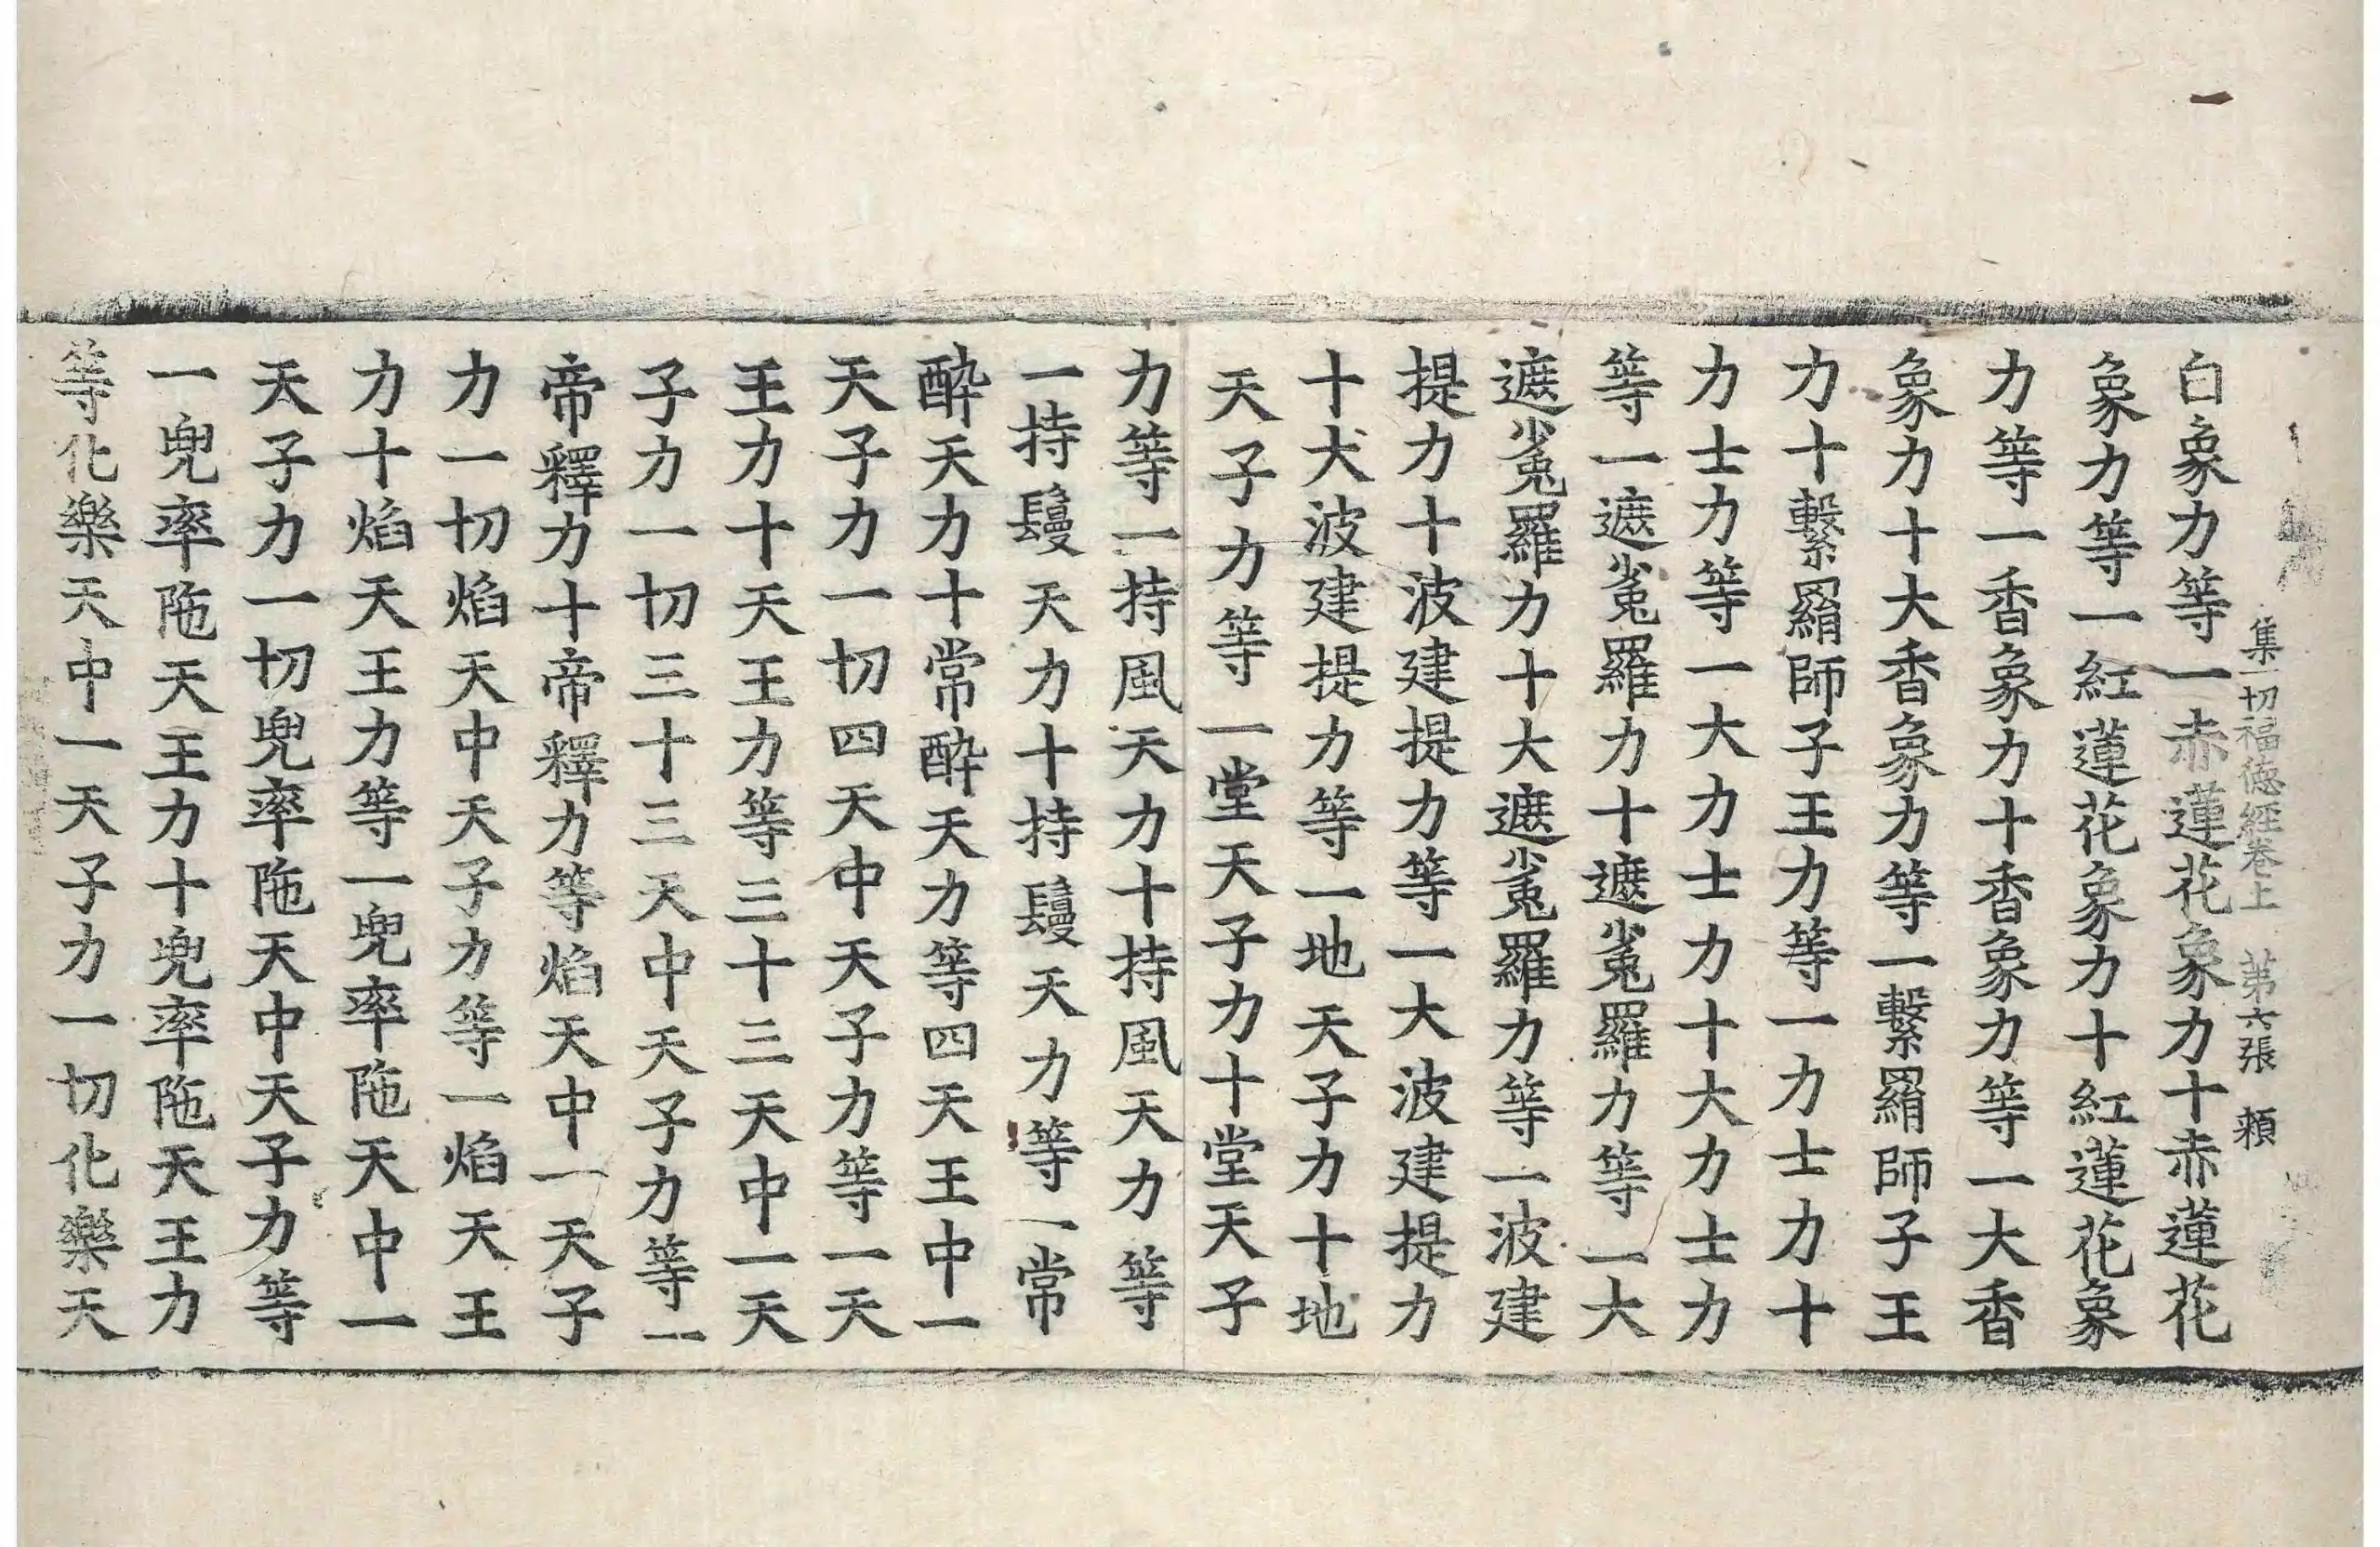 一
集一切福德經卷上　第六張　賴
白象力等一赤蓮花象力十赤蓮花
象力等一紅蓮花象力十紅蓮花象
力等一香象力十香象力等一大香
象力十大香象力等一繫羂師子王
力十繫羂師子王力等一力士力十
力士力等一大力士力十大力士力
等一遮㝹羅力十遮㝹羅力等一大
遮㝹羅力十大遮㝹羅力等一波建
提力十波建提力等一大波建提力
十大波建提力等一地天子力十地
天子力等一堂天子力十堂天子
力等一持風天力十持風天力等
一持鬘天力十持鬘天力等一常
醉天力十常醉天力等四天王中一
天子力一切四天中天子力等一天
王力十天王力等三十三天中一天
子力一切三十三天中天子力等一
帝釋力十帝釋力等焰天中一天子
力一切焰天中天子力等一焰天王
力十焰天王力等一兜率陁天中一
天子力一切兜率陁天中天子力等
一兜率陁天王力十兜率陁天王力
等化樂天中一天子力一切化樂天